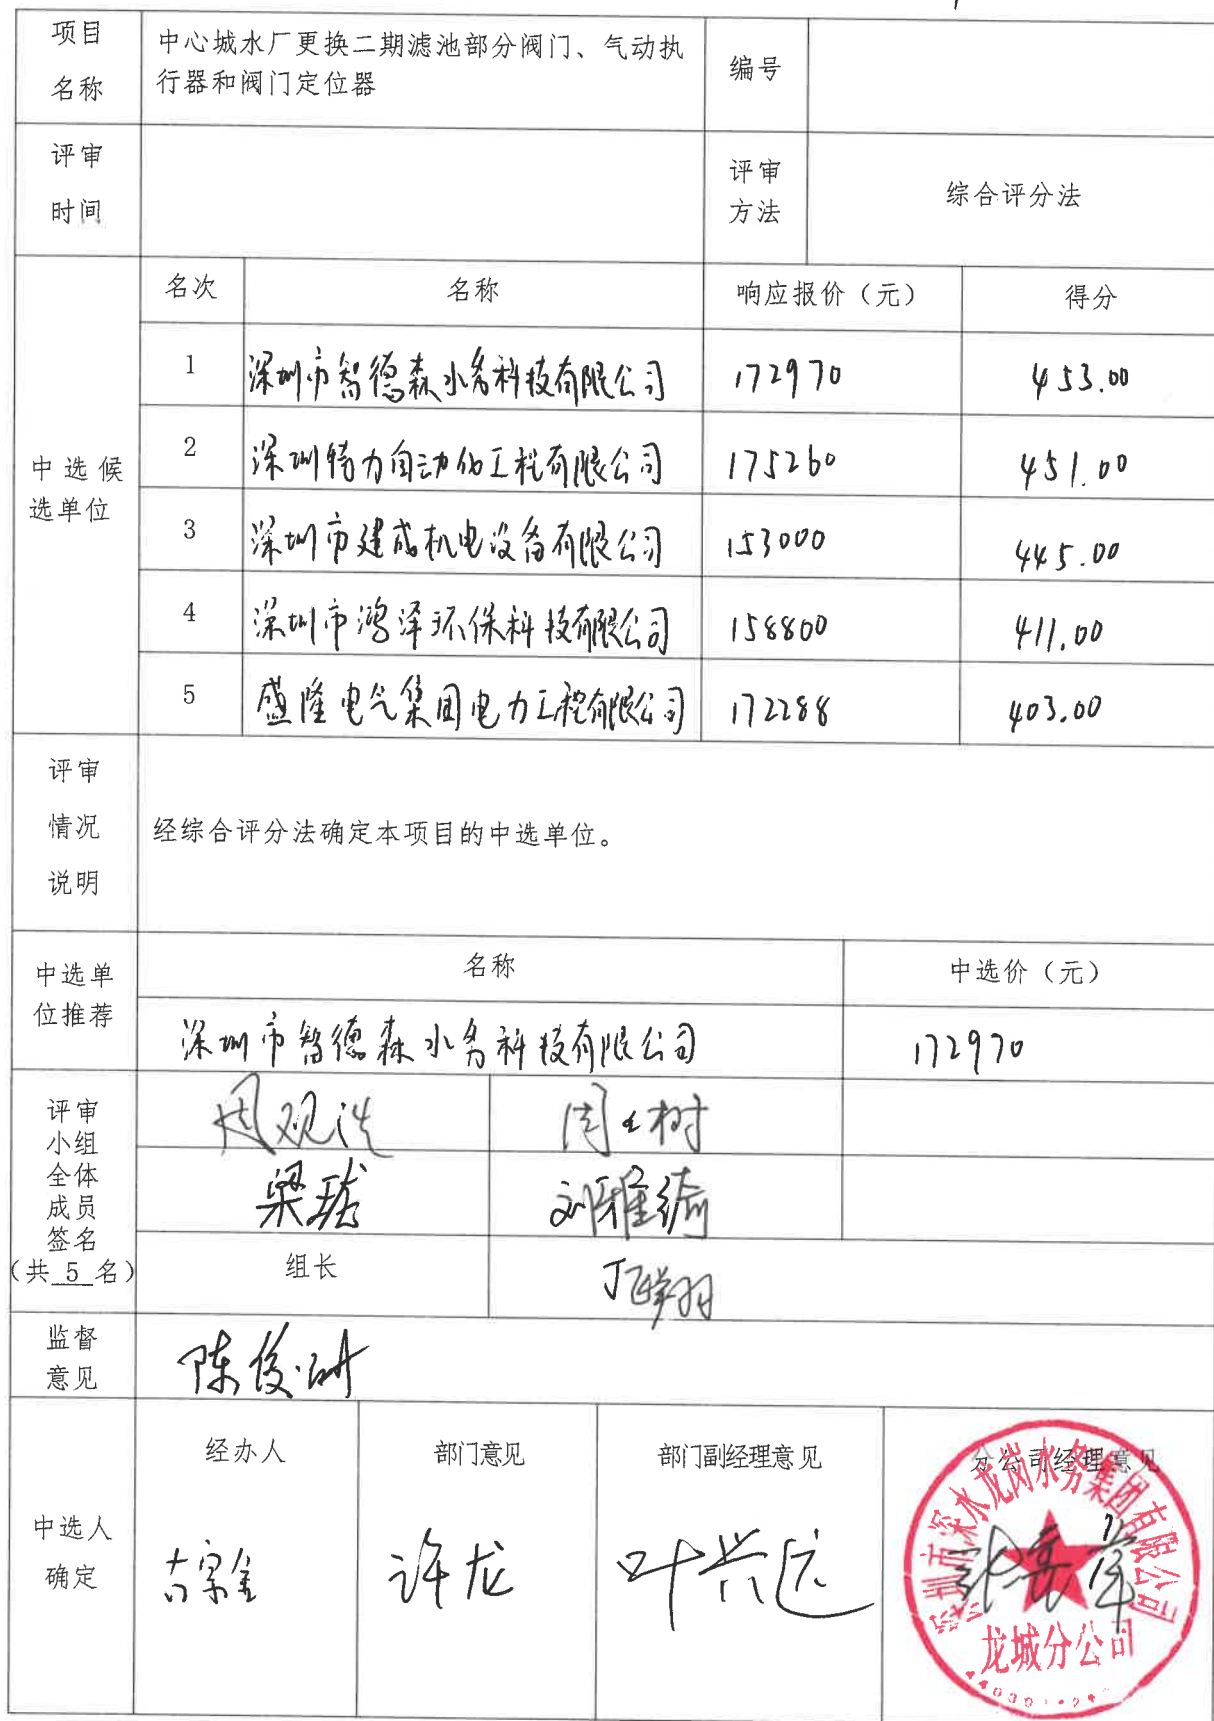 项目
名称
中心城水厂更换二期滤池部分阀门、气动执
行器和阀门定位器
编号
评审
时间
评审
方法
综合评分法
中选候
选单位
名次 名称 响应报价（元） 得分
1 深圳市智德森水务科技有限公司 172970 453.00
2 深圳特力自动化工程有限公司 175260 451.00
3 深圳市建成机电设备有限公司 153000 445.00
4 深圳市鸿泽环保科技有限公司 158800 411.00
5 盛隆电气集团电力工程有限公司 172288 403.00
评审
情况
说明
经综合评分法确定本项目的中选单位。
中选单
位推荐
名称 中选价（元）
深圳市智德森水务科技有限公司 172970
评审
小组
全体
成员
签名
（共 5 名）
周观洪
梁琥 刘雅绮
组长
监督
意见
中选人
确定
经办人 部门意见 部门副经理意见 分公司经理意见
许龙 叶兴远
深圳市深水龙岗水务集团有限公司
龙城分公司